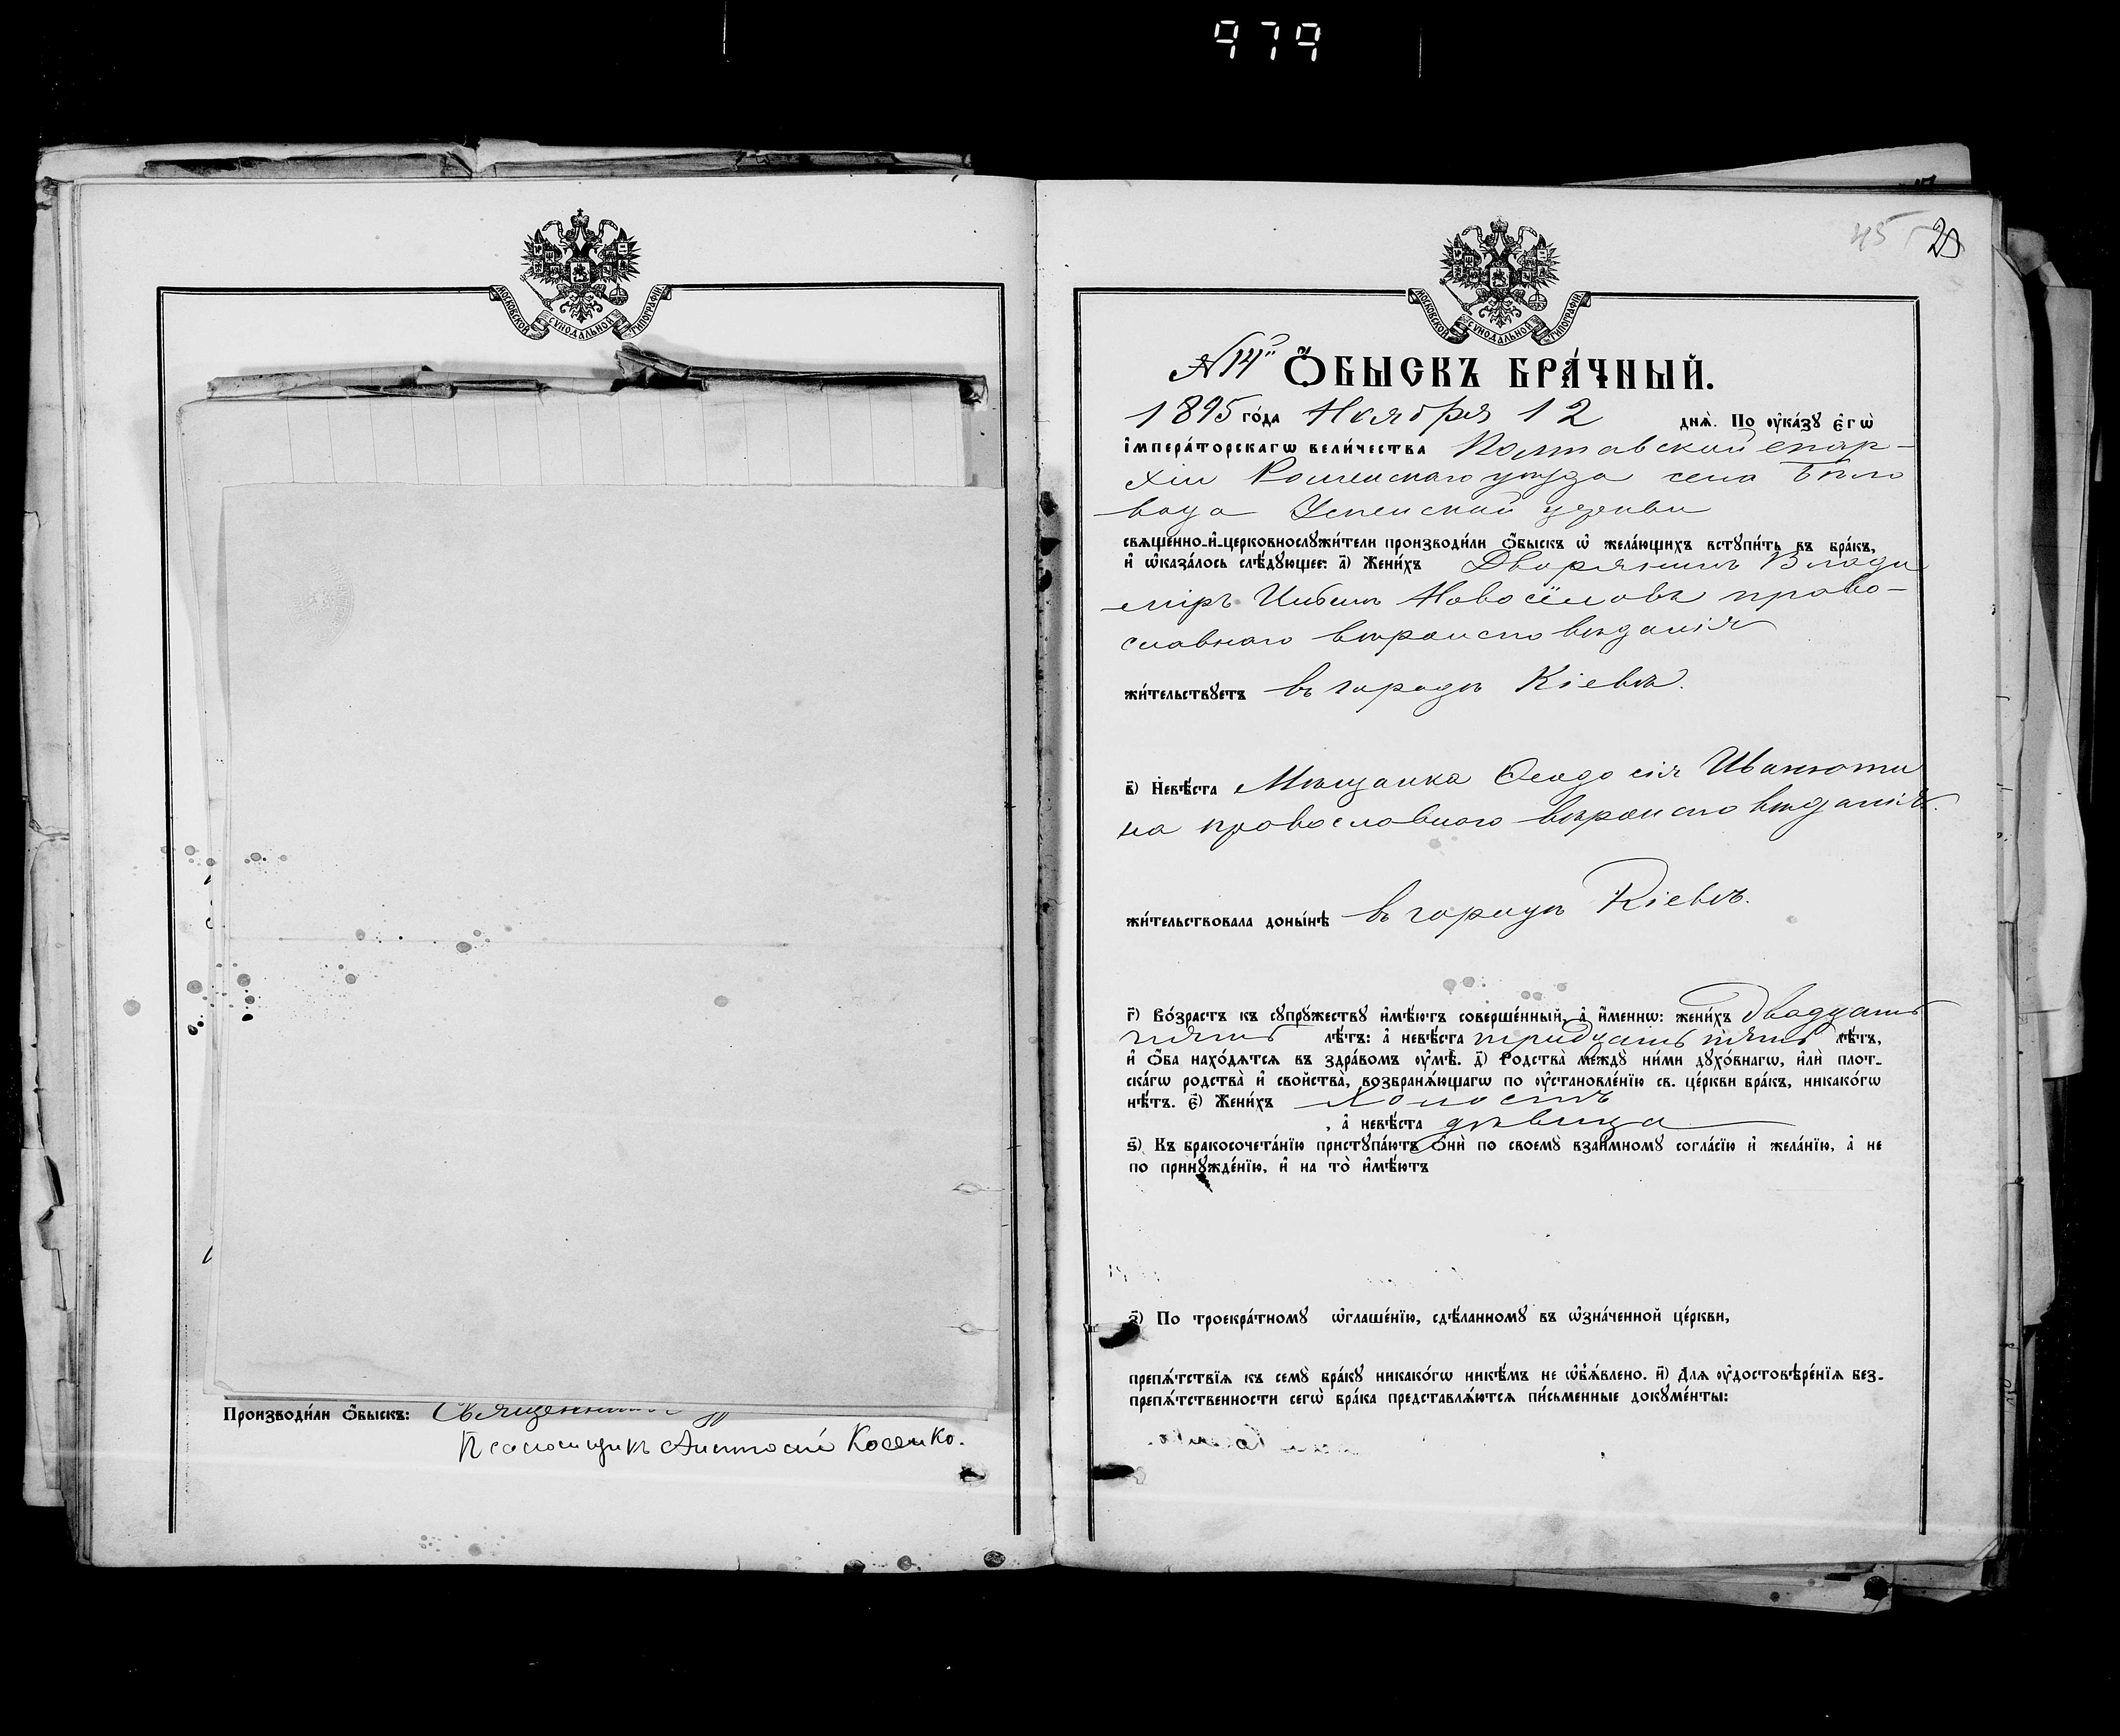 979
МОСКОВСКОЙ СѴНОДАЛЬНОЙ ТИПОГРАФІИ
Производи́ли ѻ҆́быскъ: Священникъ
Псаломщикъ Антоній Косенко.
45 20
МОСКОВСКОЙ СѴНОДАЛЬНОЙ ТИПОГРАФІИ
№ 14й Ѻ҆́БЫСКЪ БРА́ЧНЫЙ.
1895 го́да Ноября 12 днѧ̀. По ᲂу҆ка́зꙋ є҆гѡ̀
і҆мпера́торскагѡ вели́чества Полтавской епар-
хіи Роменскаго уѣзда села Бѣло
вода Успенской церкви
свѧщенно-и҆-церковнослꙋжи́тели производи́ли ѻ҆́быскъ ѡ҆ жела́ющихъ встꙋпи́ть въ бра́къ,
и҆ ѡ҆каза́лось слѣ́дꙋющее: а҃) Жени́хъ Дворянинъ Влади
міръ Новосёловъ право-
славнаго вѣроисповѣданія
жи́тельствꙋетъ въ городѣ Кіевѣ.
в҃) Невѣ́ста Мѣщанка Ѳеодосія Иванюти
на православнаго вѣроисповѣданія.
жи́тельствовала доны́нѣ въ городѣ Кіевѣ.
г҃) Во́зрастъ къ сꙋпрꙋ́жествꙋ и҆мѣ́ютъ соверше́нный, а҆ и҆́меннѡ: жени́хъ двадцать
пять лѣ́тъ: а҆ невѣ́ста тридцать пять лѣ́тъ,
и҆ ѻ҆́ба нахо́дѧтсѧ въ здра́вомъ ᲂу҆мѣ̀. д҃) Родства̀ междꙋ̀ ни́ми дꙋхо́внагѡ, и҆лѝ плот-
ска́гѡ родства̀ и҆ свойства̀, возбранѧ́ющагѡ по ᲂу҆становле́нїю св. це́ркви бра́къ, никако́гѡ
нѣ́тъ. є҃) Жени́хъ холостъ
, а҆ невѣ́ста дѣвица
ѕ҃) Къ бракосочета́нїю пристꙋпа́ютъ ѻ҆нѝ по своемꙋ̀ взаи́мномꙋ согла́сїю и҆ жела́нїю, а҆ не
по принꙋжде́нїю, и҆ на то̀ и҆мѣ́ютъ
з҃) По троекра́тномꙋ ѡ҆глаше́нїю, сдѣ́ланномꙋ въ ѡ҆зна́ченной це́ркви,
препѧ́тствїѧ къ семꙋ̀ бра́кꙋ никако́гѡ никѣ́мъ не ѡ҆б̾ѧ́влено. и҃) Для ᲂу҆достовѣре́нїѧ без-
препѧ́тственности сегѡ̀ бра́ка представлѧ́ютсѧ пи́сьменные докꙋме́нты: